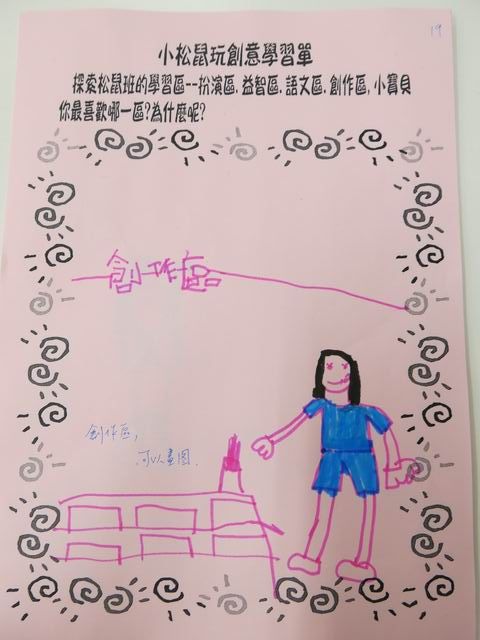 19
小松鼠玩創意學習單
探索松鼠班的學習區--扮演區.益智區.語文區.創作區,小寶貝
你最喜歡哪一區?為什麼呢?
創作區
創作區,
可以畫圖.